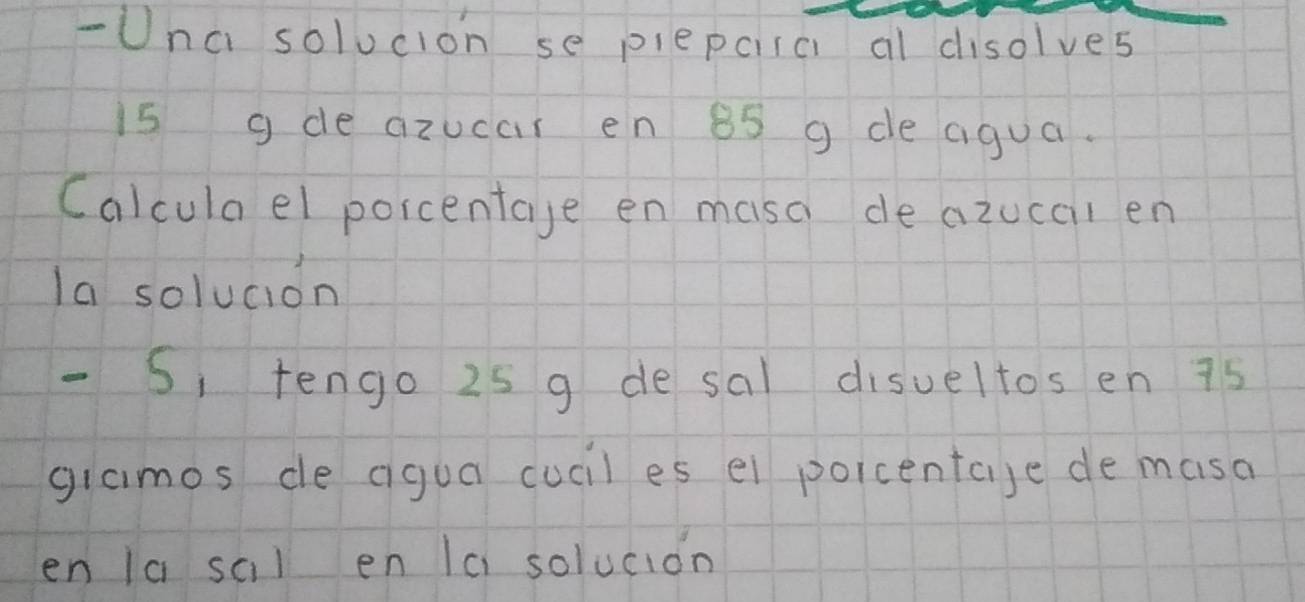 -Una solución se prepara al disolves
15 g de azucar en 85 g de agua.
Calcula el porcentaje en masa de azucar en
la solución
- Si tengo 25 g de sal disueltos en 75
gramos de agua cuál es el porcentaje de masa
en la sal en la solución